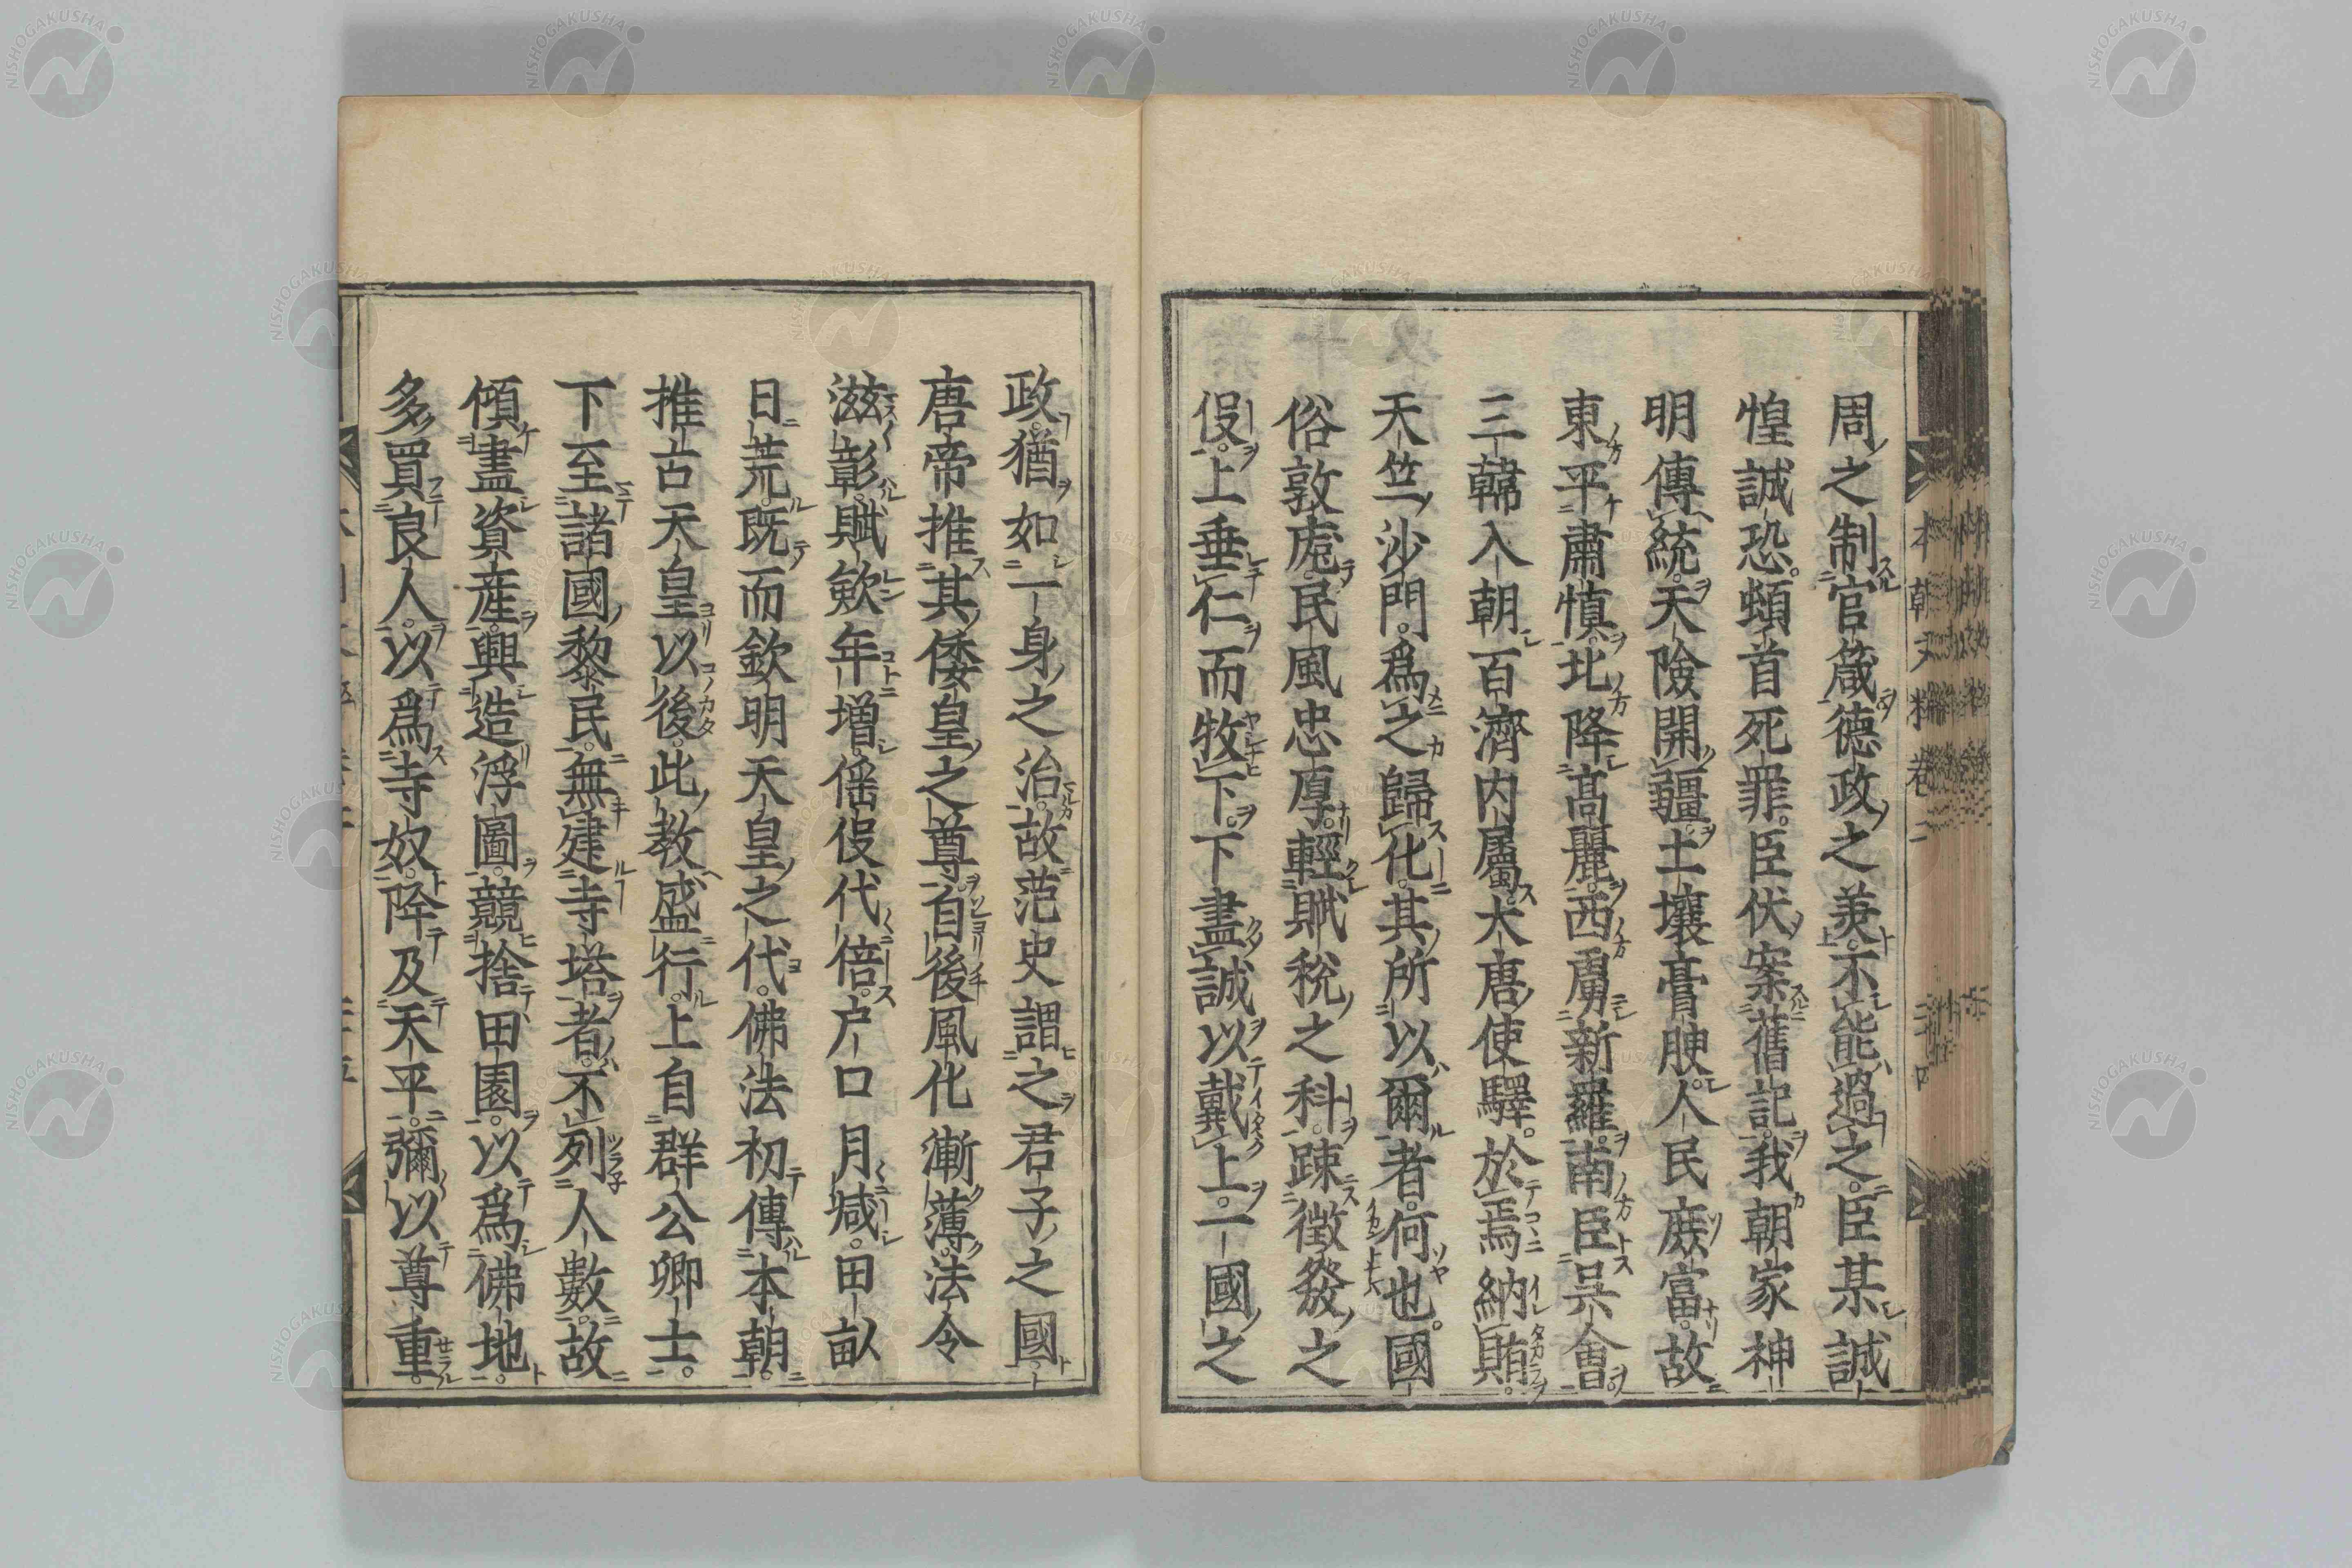 周之制官箴德政之美不能過之臣某誠
惶誠恐頓首死罪臣伏案舊記我朝家神
明傳統天險開疆土壤膏腴人民庶富故
東平肅慎北降髙麗西虜新羅南臣吳會
三韓入朝百濟内屬大唐使驛於焉納賄
天竺沙門爲之歸化其所以爾者何也國
俗敦厖民風忠厚輕賦稅之科疎徵發之
役上垂仁而牧下下盡誠以戴上一國之
政猶如一身之治故范史謂之君子之國
唐帝推其倭皇之尊自後風化漸薄法令
滋彰賦斂年増傜役代倍户口月减田畝
日荒既而欽明天皇之代佛法初傳本朝
推古天皇以後此教盛行上自群公卿士
下至諸國黎民無建寺塔者不列人數故
傾盡資産興造浮圖競捨田園以爲佛地
多買良人以爲寺奴降及天平彌以尊重
本朝文粹卷二
NISHOGAKUSHA